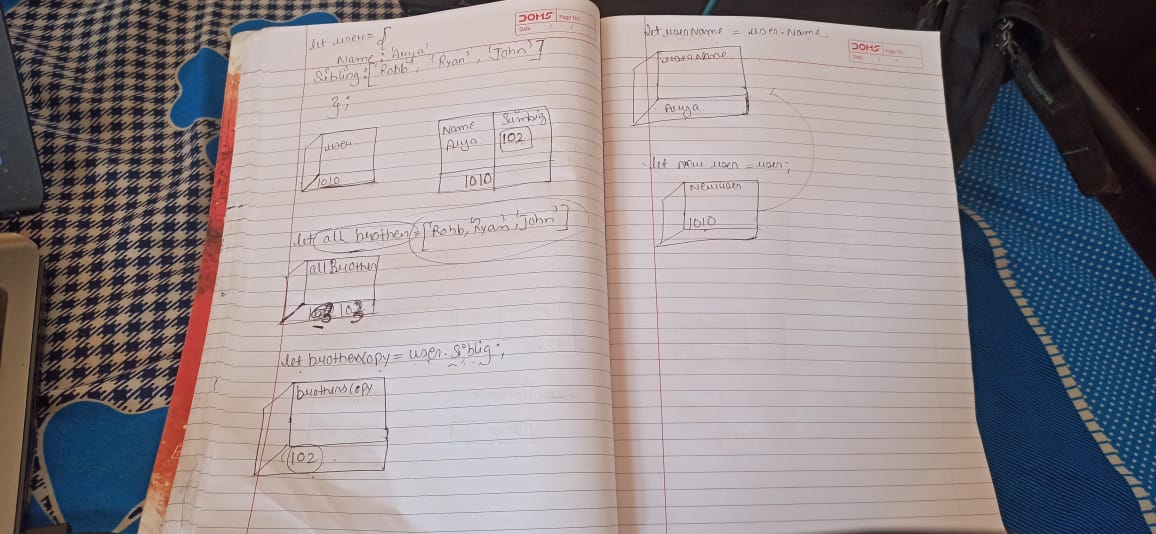 DOMS Page No.
Date / /
let user = {
Name : 'Auya'
Sibling : ['Robb', 'Ryan', 'John']
};
user
1010
Name
Auya
102
1010
let all brother = ['Robb, 'Ryan', 'John']
all Brother
103
let brotherscopy = user. Siblig;
brothers copy
102
let userName = user.Name.
DOMS Page No.
Date / /
userName
Auya
let new user = user;
Newuser
1010